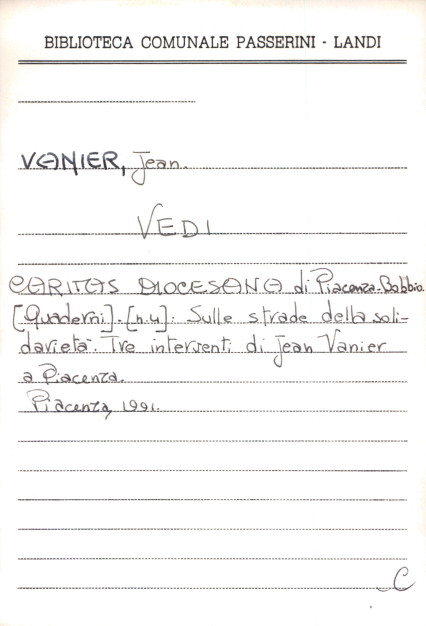 BIBLIOTECA COMUNALE PASSERINI - LANDI
VANIER, Jean.
VEDI
CARITAS DIOCESANA di Piacenza-Bobbio.
[Quaderni].[n.4]: Sulle strade della soli-
darietà. Tre interventi di Jean Vanier
a Piacenza.
Piacenza, 1991.
C